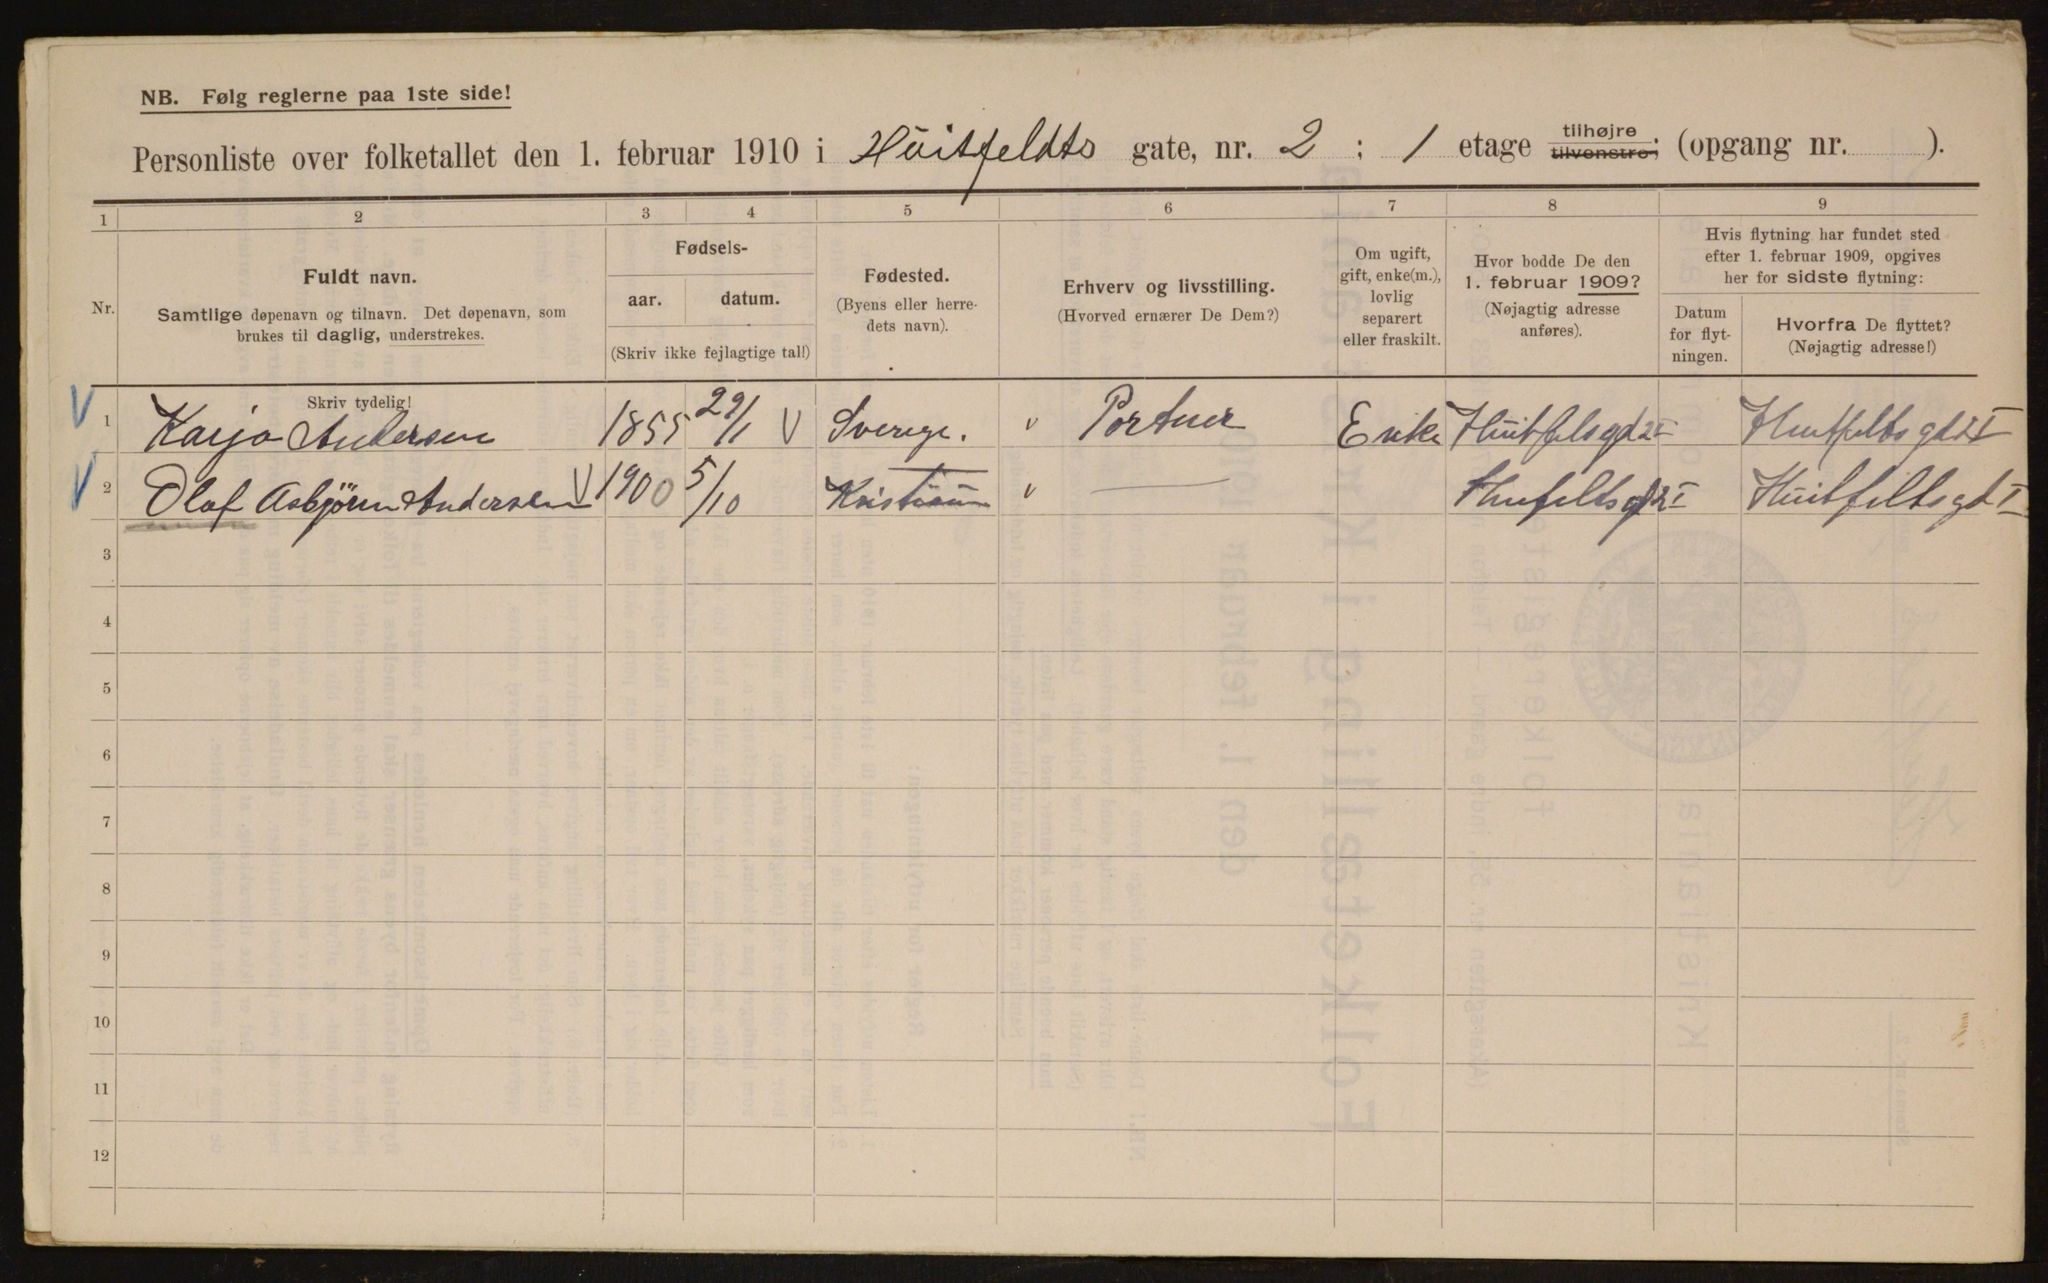 NB. Følg reglerne paa 1ste side!
Personliste over folketallet den 1. februar 1910 i Huitfeldts gate, nr. 2 ; 1 etage tilhøjre tilvenstre; (opgang nr. ).
1 2 3 4 5 6 7 8 9
Nr.
Fuldt navn.
Samtlige døpenavn og tilnavn. Det døpenavn, som
brukes til daglig, understrekes.
Skriv tydelig!
Fødsels-
aar. datum.
(Skriv ikke fejlagtige tal!)
Fødested.
(Byens eller herre-
dets navn).
Erhverv og livsstilling.
(Hvorved ernærer De Dem?)
Om ugift,
gift, enke(m.),
lovlig
separert
eller fraskilt.
Hvor bodde De den
1. februar 1909?
(Nøjagtig adresse
anføres).
Hvis flytning har fundet sted
efter 1. februar 1909, opgives
her for sidste flytning:
Datum
for flyt-
ningen.
Hvorfra De flyttet?
(Nøjagtig adresse!)
1 Kaja Andersen 1855 29/1 Sverige. Portner Enke Huitfelsgd 2 I Huitfeltsgd 2 I
2 Olaf Asbjørn Andersen 1900 5/10 Huitfeltsgd I
3
4
5
6
7
8
9
10
11
12